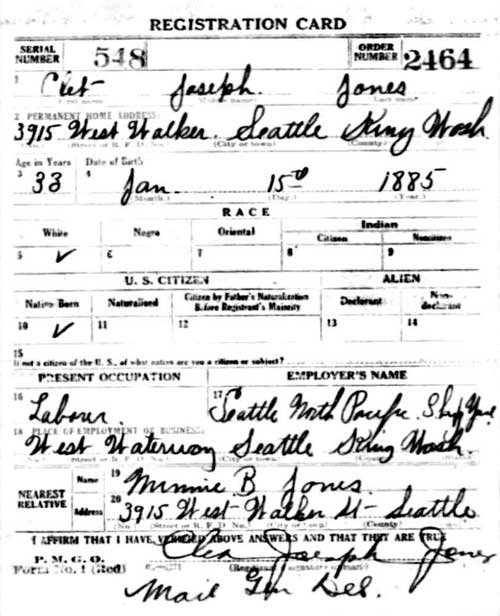 REGISTRATION CARD
SERIAL NUMBER 548 ORDER NUMBER 2464
1 Clet Joseph Jones
First name Middle name Last name
2 PERMANENT HOME ADDRESS:
3915 West Walker. Seattle King Wash.
(No.) (Street or R. F. D. No.) (City or town) (County)
Age in Years Date of Birth
3 33 4 Jan. 15th 1885
(Month.) (Day.) (Year.)
RACE
White Negro Oriental Indian
Citizen Noncitizen
5 ✓ 6 7 8 9
U. S. CITIZEN ALIEN
Native Born Naturalized Citizen by Father's Naturalization Before Registrant's Majority Declarant Non-declarant
10 ✓ 11 12 13 14
15
If not a citizen of the U. S., of what nation are you a citizen or subject?
PRESENT OCCUPATION EMPLOYER'S NAME
16 Laborer 17 Seattle North Pacific Ship Yard
18 PLACE OF EMPLOYMENT OR BUSINESS:
West Waterway Seattle King Wash.
(No.) (City or town)
NEAREST RELATIVE Name 19 Minnie B Jones
Address 20 3915 West Walker St- Seattle
(No.) (Street or R. F. D. No.) (City or town) (County)
I AFFIRM THAT I HAVE VERIFIED ABOVE ANSWERS AND THAT THEY ARE TRUE
P. M. G. O.
Form No. 1 (Red) Joseph Jones
(Registrant's signature or mark)
Mail